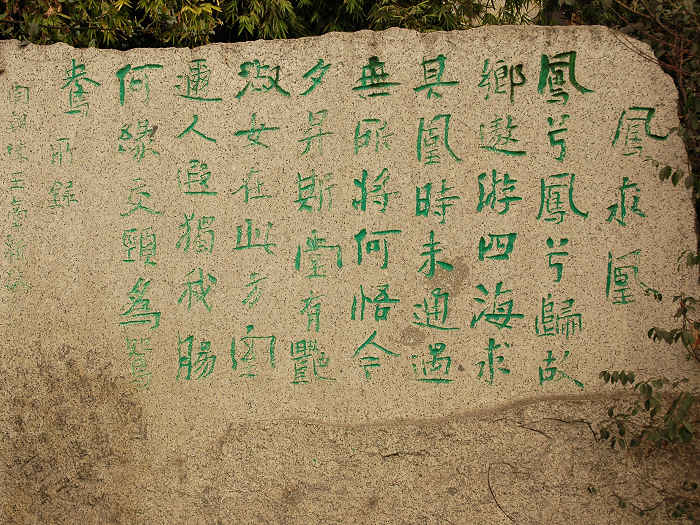 鳳求凰
鳳兮鳳兮歸故
鄉遨游四海求
其凰時未通遇
無所將何悟今
夕昇斯堂有艷
淑女在此方
邇人遐獨我腸
何緣交頸為鴛
鴦 所録